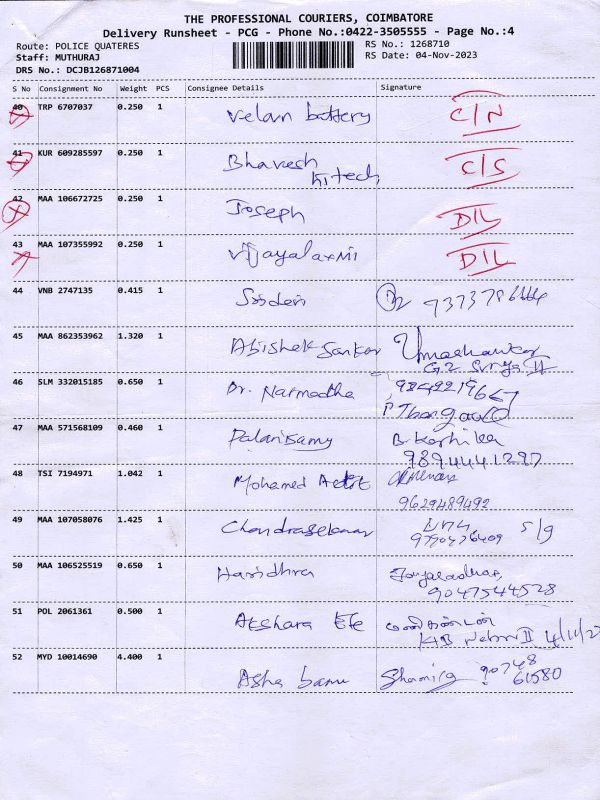 THE PROFESSIONAL COURIERS, COIMBATORE
Delivery Runsheet - PCG - Phone No.:0422-3505555 - Page No.:4
Route: POLICE QUATERES RS No.: 1268710
Staff: MUTHURAJ RS Date: 04-Nov-2023
DRS No.: DCJB126871004
S No Consignment No Weight PCS Consignee Details Signature
40 TRP 6707037 0.250 1 Velan battery C/N
41 KUR 609285597 0.250 1 Bhavesh C/S
Kitech
42 MAA 106672725 0.250 1 Joseph D/L
43 MAA 107355992 0.250 1 Vijayalaxmi D/L
44 VNB 2747135 0.415 1
45 MAA 862353962 1.320 1 Abishek Sankar Umashankar
G2 Surya II
46 SLM 332015185 0.650 1 Dr. Narmadha 9842219667
47 MAA 571568109 0.460 1 Palanisamy B. Karthika
9894441297
48 TSI 7194971 1.042 1 Mohamed
9629489492
49 MAA 107058076 1.425 1 Chandrasekaar S/g
50 MAA 106525519 0.650 1 Haridhra
9047544528
51 POL 2061361 0.500 1 Akshara மணிகண்டன்
52 MYD 10014690 4.400 1 Asha banu 90748
61580